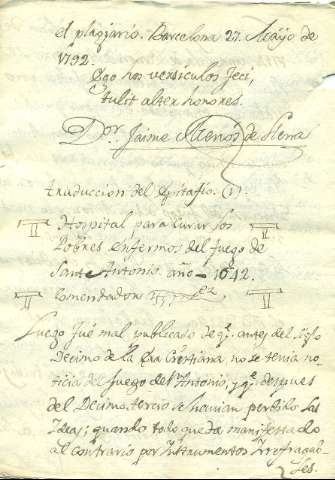 el plagiario. Barcelona 27. Mayo de
1792.
Ego hos versiculos feci,
tulit alter honores.
Dor. Jaime Menós de Llena
traduccion del Epitafio. (1).
Hospital para curar los
Pobres enfermos del fuego de
Sant Antonio. año 1642.
Comendador
Luego fué mal publicado de qe. antes del Siglo
Decimo de la Era Cristiana no se tenia no-
ticia del fuego de Sn. Antonio, y qe. despues
del Decimo tercio se havian perdido las
Ideas; quando todo queda manifestado
al contrario por Instrumentos Irrefragab-
les.